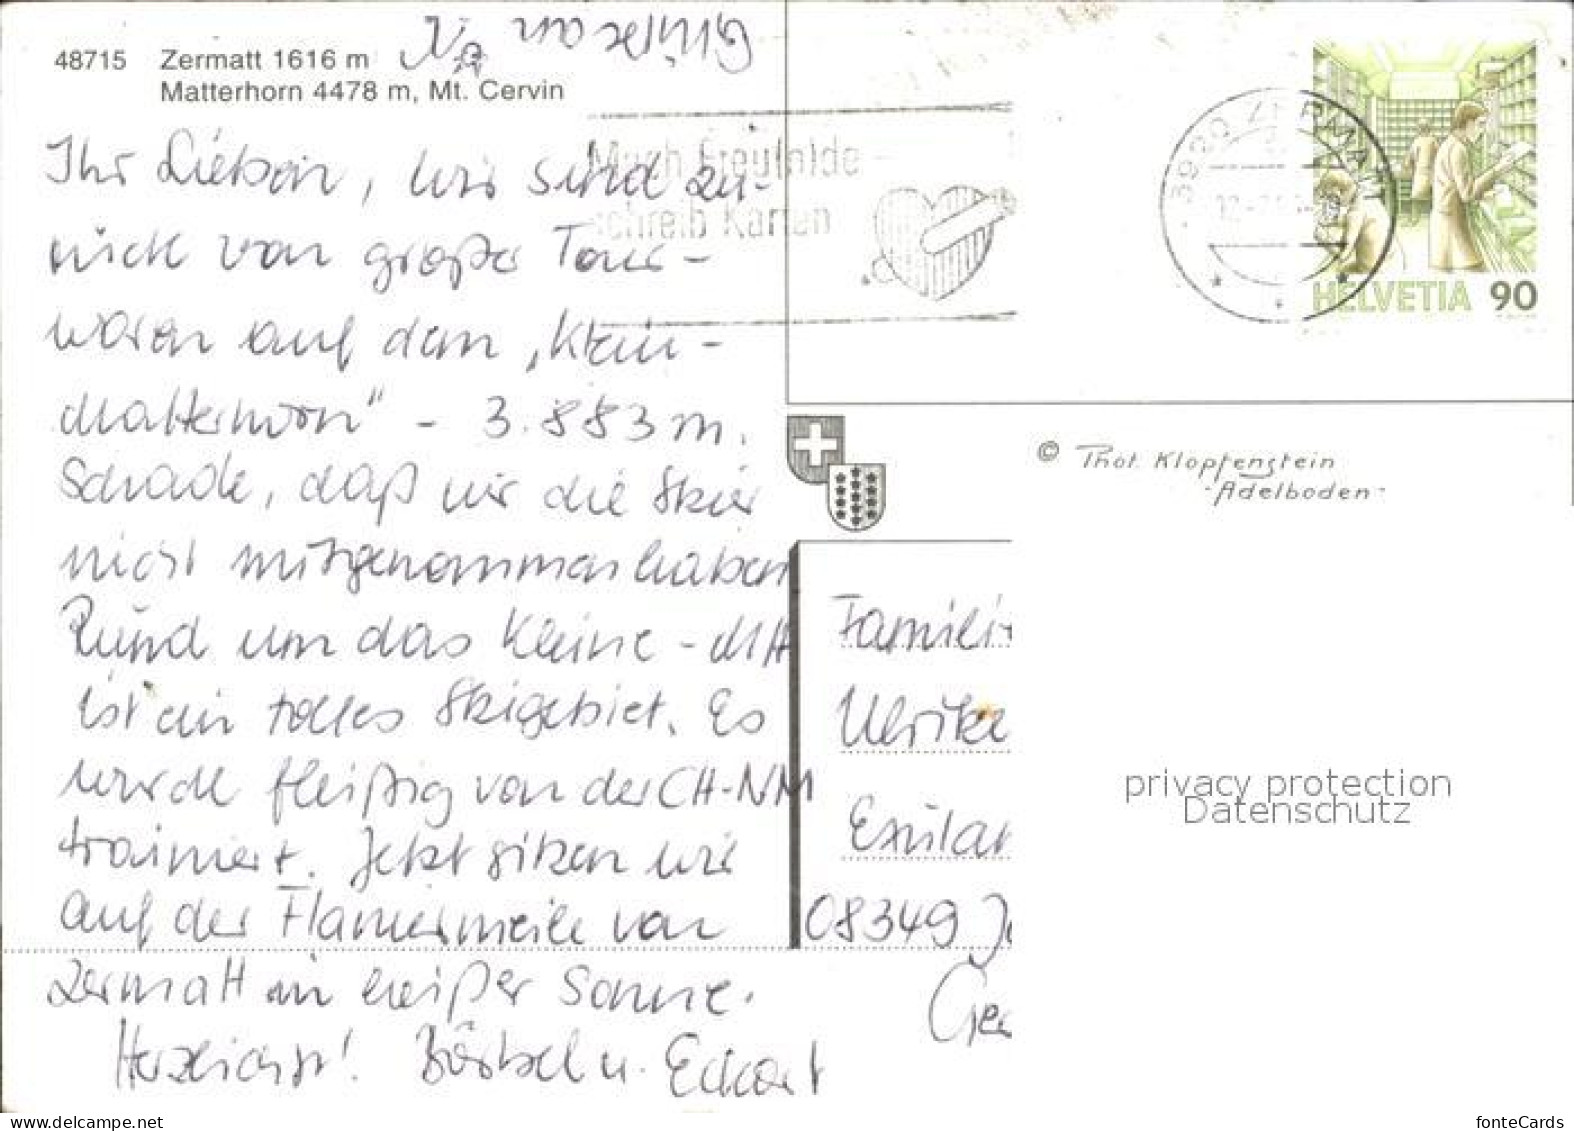 48715 Zermatt 1616 m
Matterhorn 4478 m, Mt. Cervin
Ihr Lieben, wir sind zu-
rück von großer Tour -
waren auf dem „Klein-
Matterhorn" - 3.883 m.
Schade, daß wir die Skier
nicht mitgenommen haben
Rund um das Kleine - MH
ist ein tolles Skigebiet. Es
wurde fleißig von der CH-NM
trainiert. Jetzt sitzen wir
auf der Flaniermeile von
Zermatt in heißer Sonne.
Herzlichst! Bärbel u. Eckart
Mach Freunde
schreib Karten
3920 ZERMATT
HELVETIA 90
© Phot. Klopfenstein
- Adelboden -
Famili
Ulrike
Exulan
08349 Jo
Ger
privacy protection
Datenschutz
www.delcampe.net
fonteCards